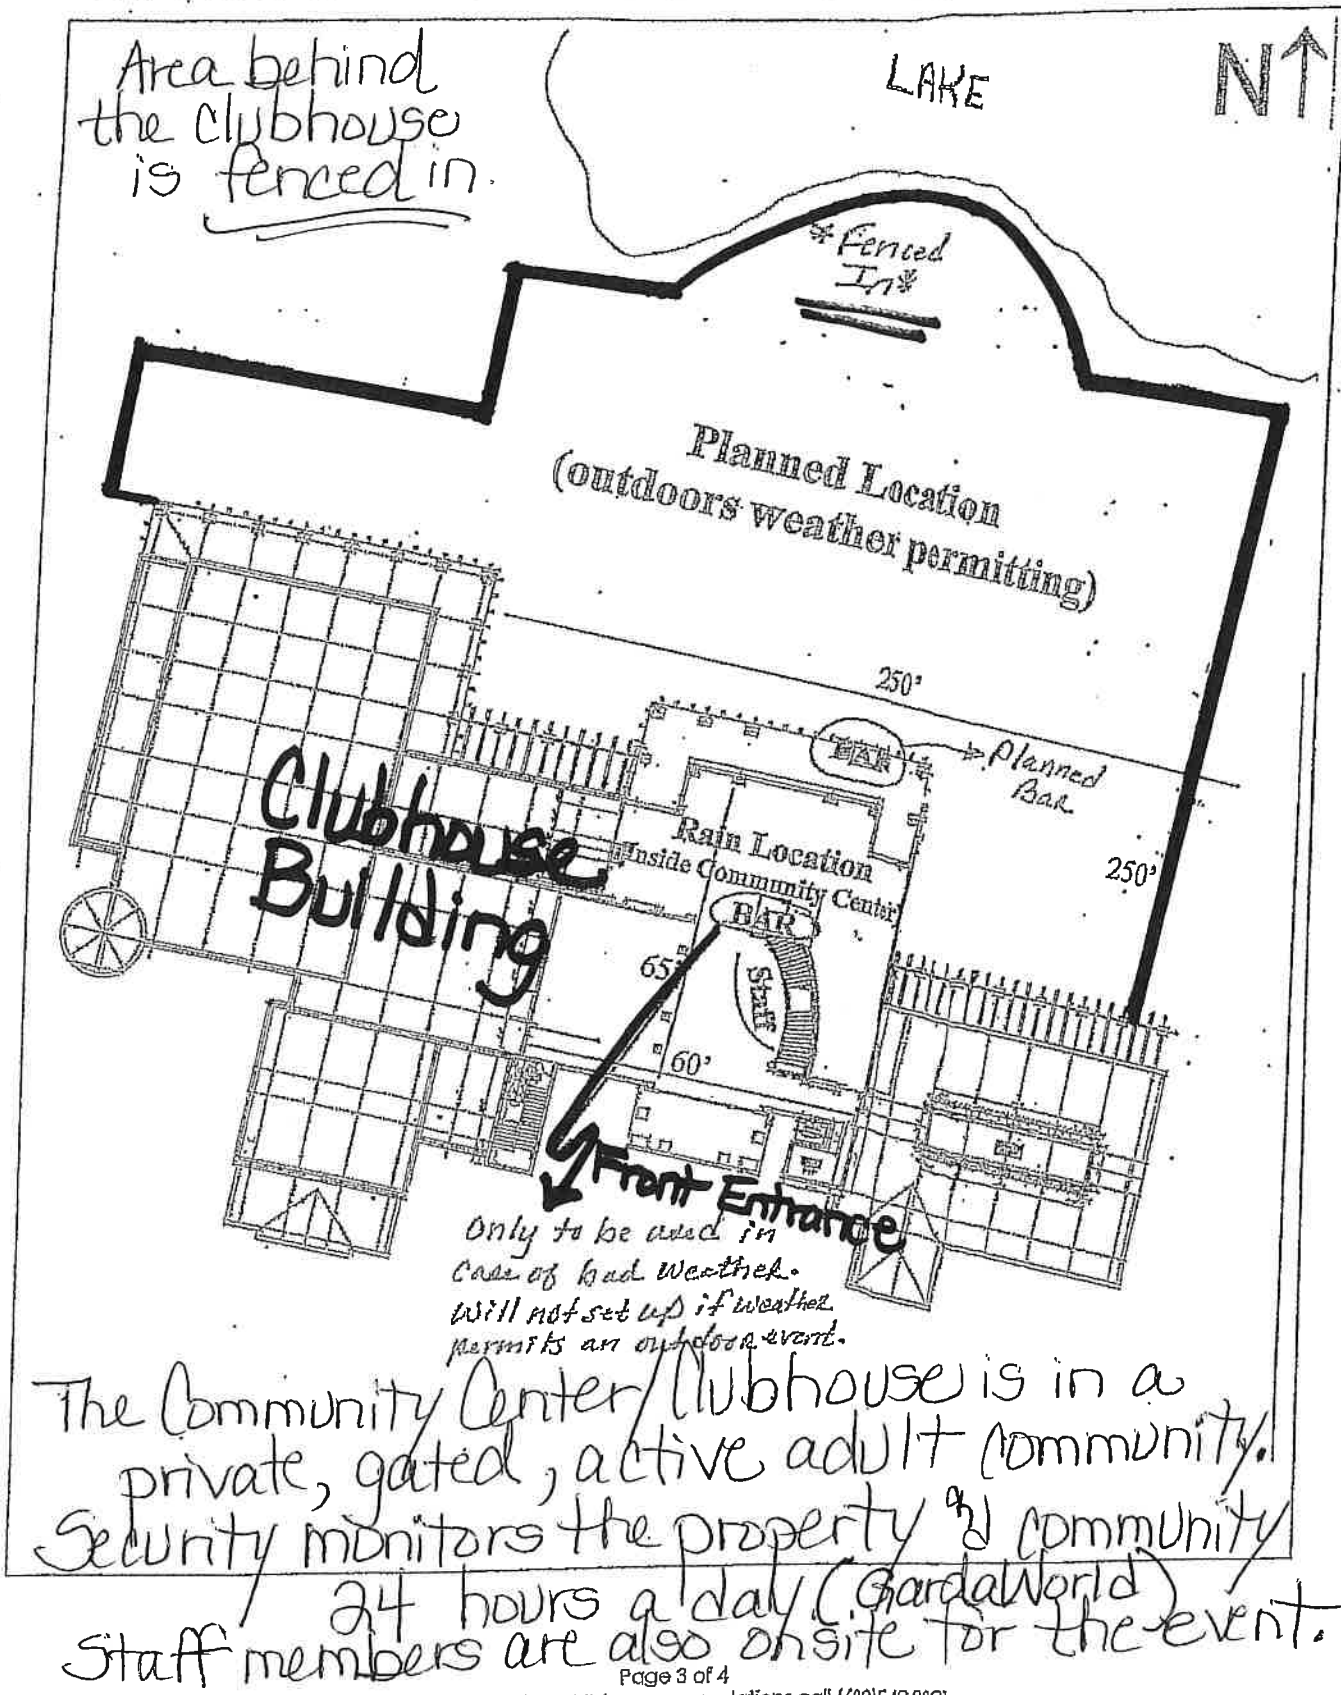 Area behind
the Clubhouse
is fenced in.
LAKE
N
* Fenced
In*
Planned Location
(outdoors weather permitting)
250'
BAR
Planned
Bar
Clubhouse
Building
Rain Location
(Inside Community Center)
BAR
250'
65'
Staff
60'
Front Entrance
Only to be used in
case of bad weather.
Will not set up if weather
permits an outdoor event.
The Community Center/Clubhouse is in a
private, gated, active adult community.
Security monitors the property and community
24 hours a day (GardaWorld)
Staff members are also onsite for the event.
Page 3 of 4